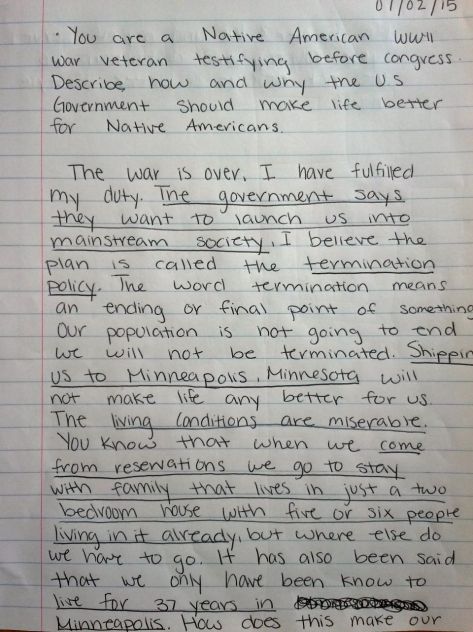 07/02/15
• You are a Native American WWII
war veteran testifying before congress.
Describe how and why the US
Government should make life better
for Native Americans.
The war is over, I have fulfilled
my duty. The government says
they want to launch us into
mainstream society, I believe the
plan is called the termination
policy. The word termination means
an ending or final point of something
Our population is not going to end
we will not be terminated. Shippin
us to Minneapolis, Minnesota will
not make life any better for us.
The living conditions are miserable.
You know that when we come
from reservations we go to stay
with family that lives in just a two
bedroom house with five or six people
living in it already, but where else do
we have to go. It has also been said
that we only have been know to
live for 37 years in
Minneapolis. How does this make our